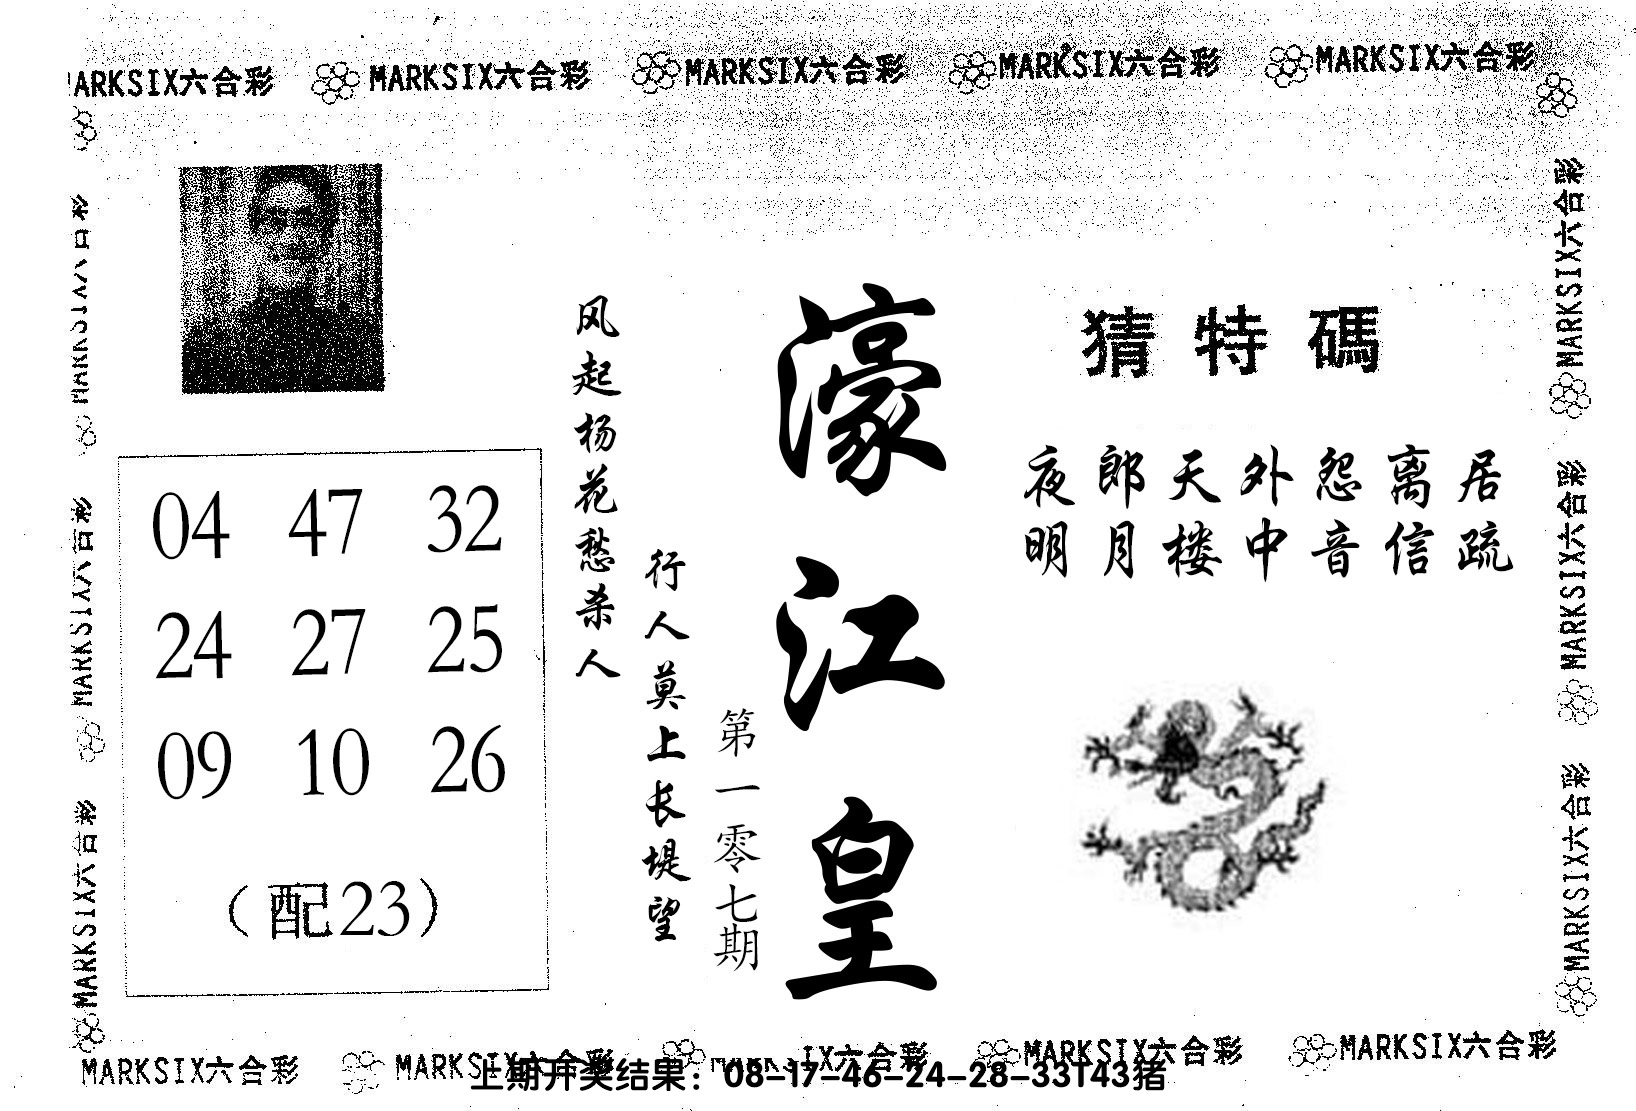 MARKSIX六合彩 MARKSIX六合彩 MARKSIX六合彩 MARKSIX六合彩 MARKSIX六合彩
猜特碼
夜郎天外怨离居
明月楼中音信疏
濠江皇
第一零七期
风起杨花愁杀人
行人莫上长堤望
04 47 32
24 27 25
09 10 26
（配23）
MARKSIX六合彩
MARKSIX六合彩
MARKSIX六合彩
MARKSIX六合彩
MARKSIX六合彩
MARKSIX六合彩
MARKSIX六合彩 MARKSIX六合彩 MARKSIX六合彩 MARKSIX六合彩 MARKSIX六合彩
上期开奖结果：08-17-46-24-28-33T43猪